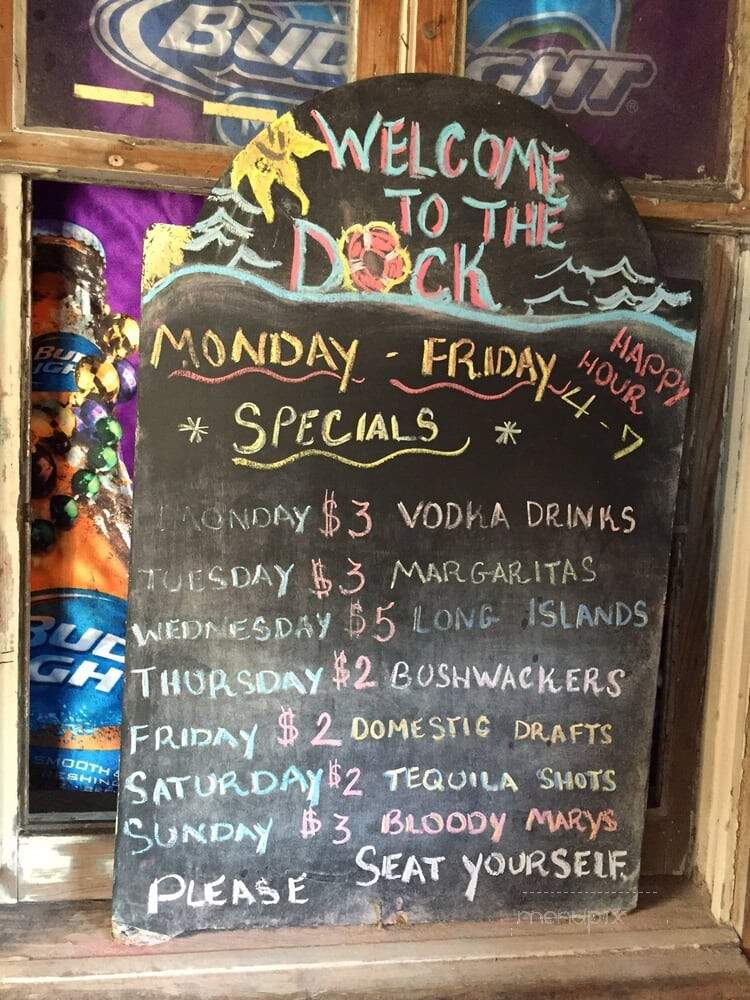 BUD
LIGHT
WELCOME
TO THE
DOCK
MONDAY - FRIDAY
HAPPY
HOUR
4-7
* SPECIALS *
MONDAY $3 VODKA DRINKS
TUESDAY $3 MARGARITAS
WEDNESDAY $5 LONG ISLANDS
THURSDAY $2 BUSHWACKERS
FRIDAY $2 DOMESTIC DRAFTS
SATURDAY $2 TEQUILA SHOTS
SUNDAY $3 BLOODY MARYS
PLEASE SEAT YOURSELF.
BUD
BUD
GHT
SMOOTH
menupix